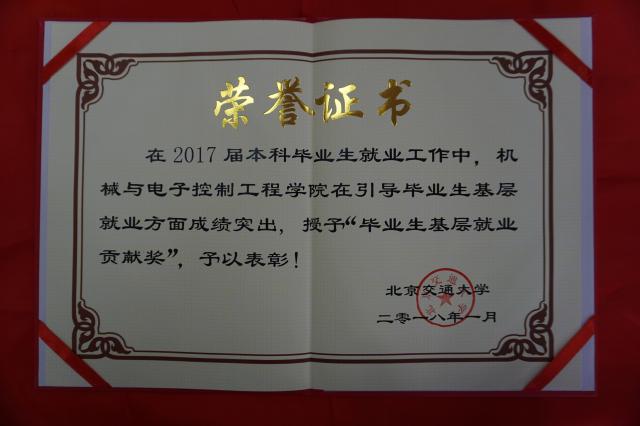 荣誉证书
在2017届本科毕业生就业工作中，机
械与电子控制工程学院在引导毕业生基层
就业方面成绩突出，授予“毕业生基层就业
贡献奖”，予以表彰！
北京交通大学
二零一八年一月